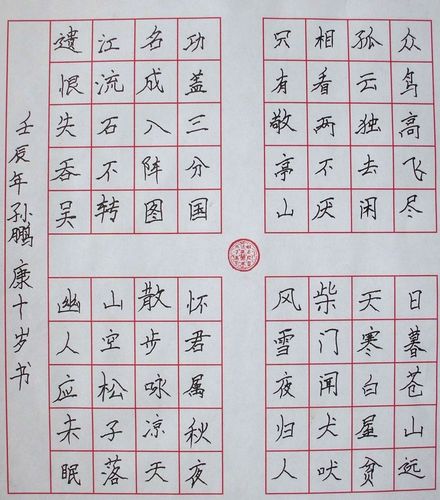 众鸟高飞尽
孤云独去闲
相看两不厌
只有敬亭山
功盖三分国
名成八阵图
江流石不转
遗恨失吞吴
日暮苍山远
天寒白屋贫
柴门闻犬吠
风雪夜归人
怀君属秋夜
散步咏凉天
山空松子落
幽人应未眠
壬辰年孙鹏康十岁书